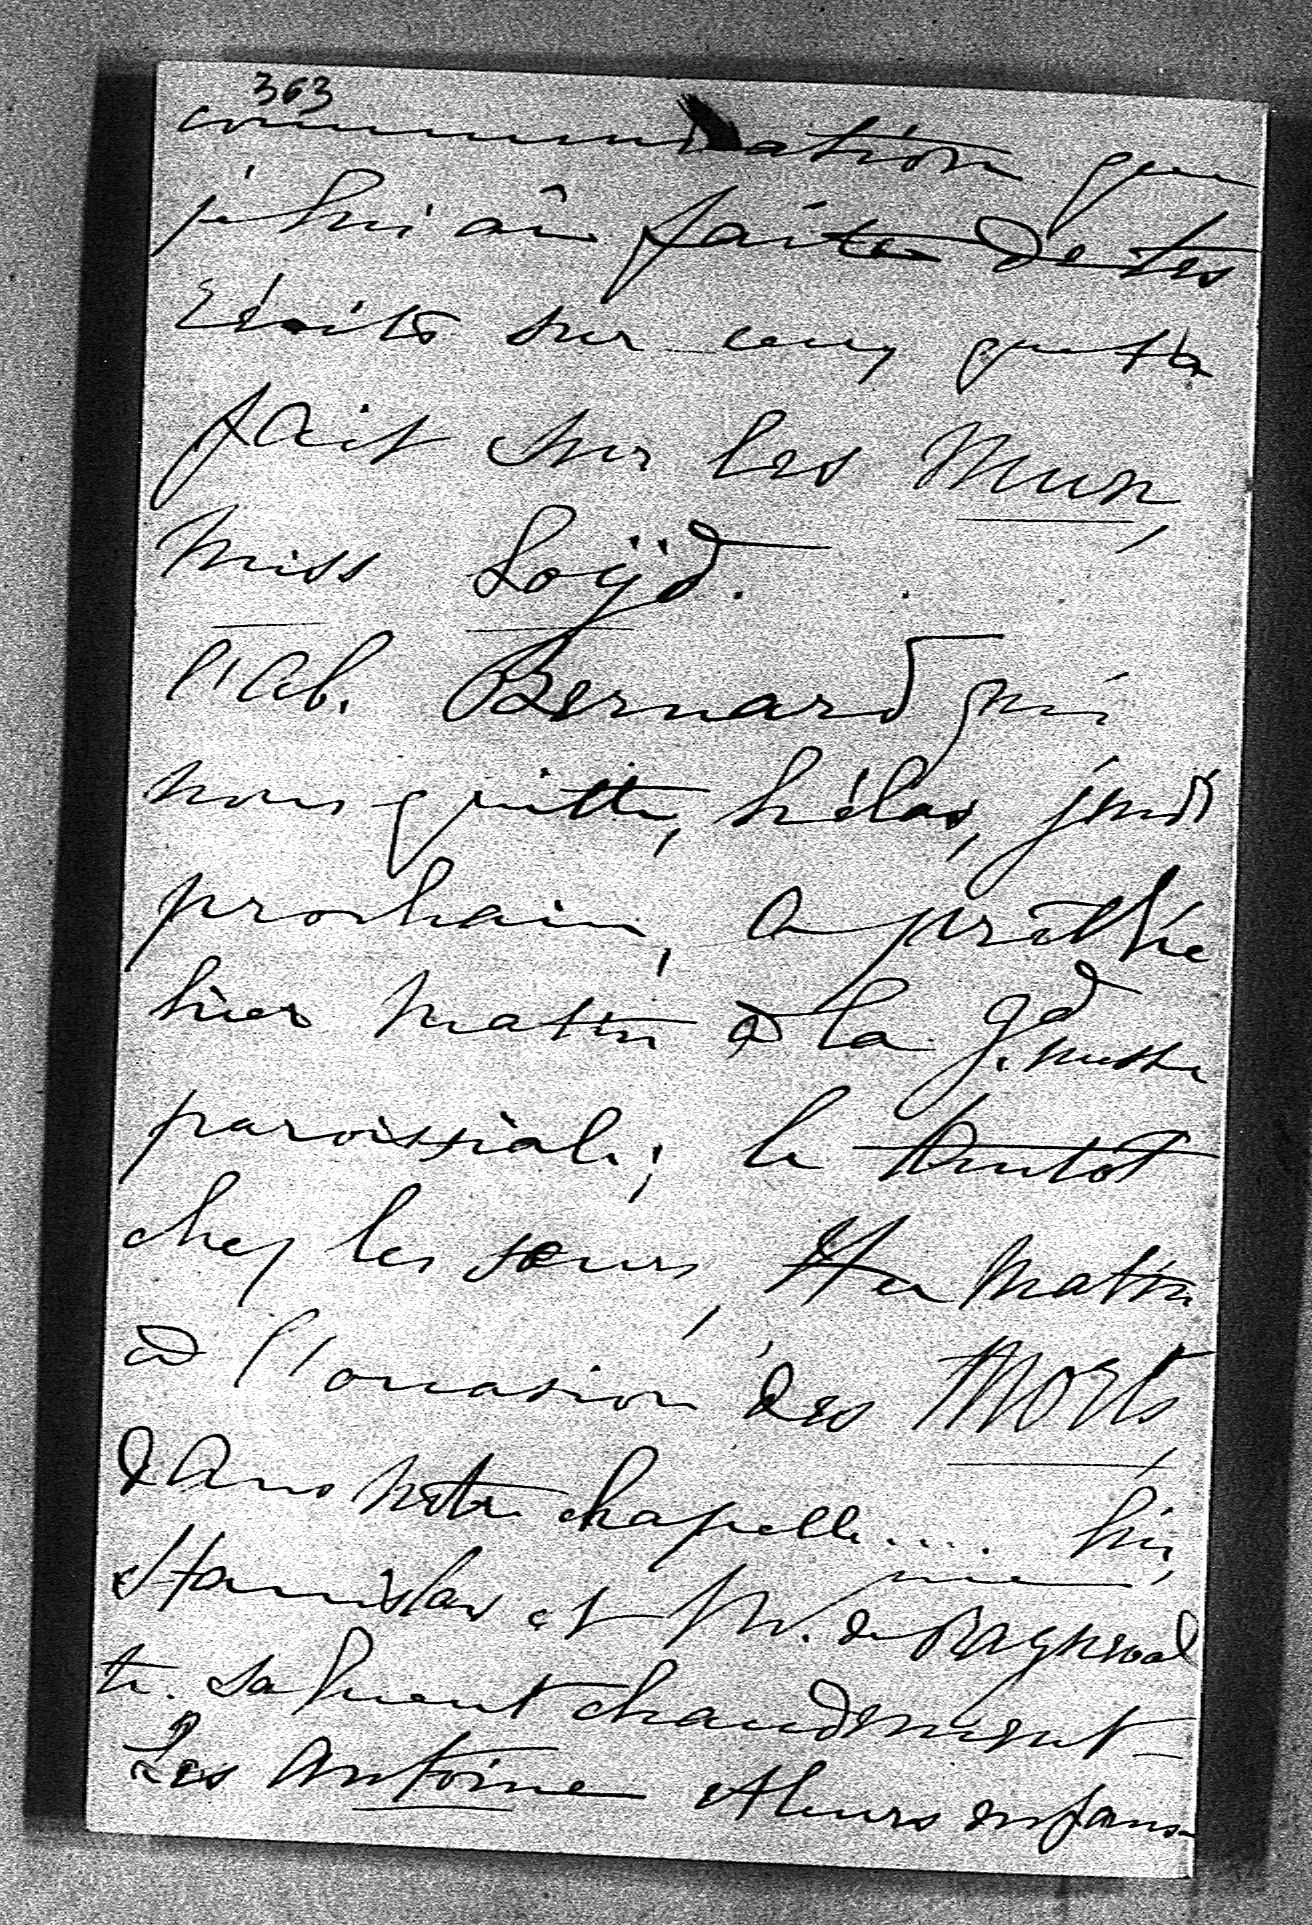 363
communication que
je lui ai faite de tes
récits sur ceux que tu
fait sur les Mun,
Miss Loÿd.
l'Ab. Bernard qui
nous quitte, hélas, jeudi
prochain, a prêché
hier matin à la gd. messe
paroissiale; le tantot
chez les sœurs, et ce matin
à l'occasion des Morts,
dans notre chapelle.... lui,
Stanislas et M. de
te. saluent chaudement
Les Antoine et leurs enfans